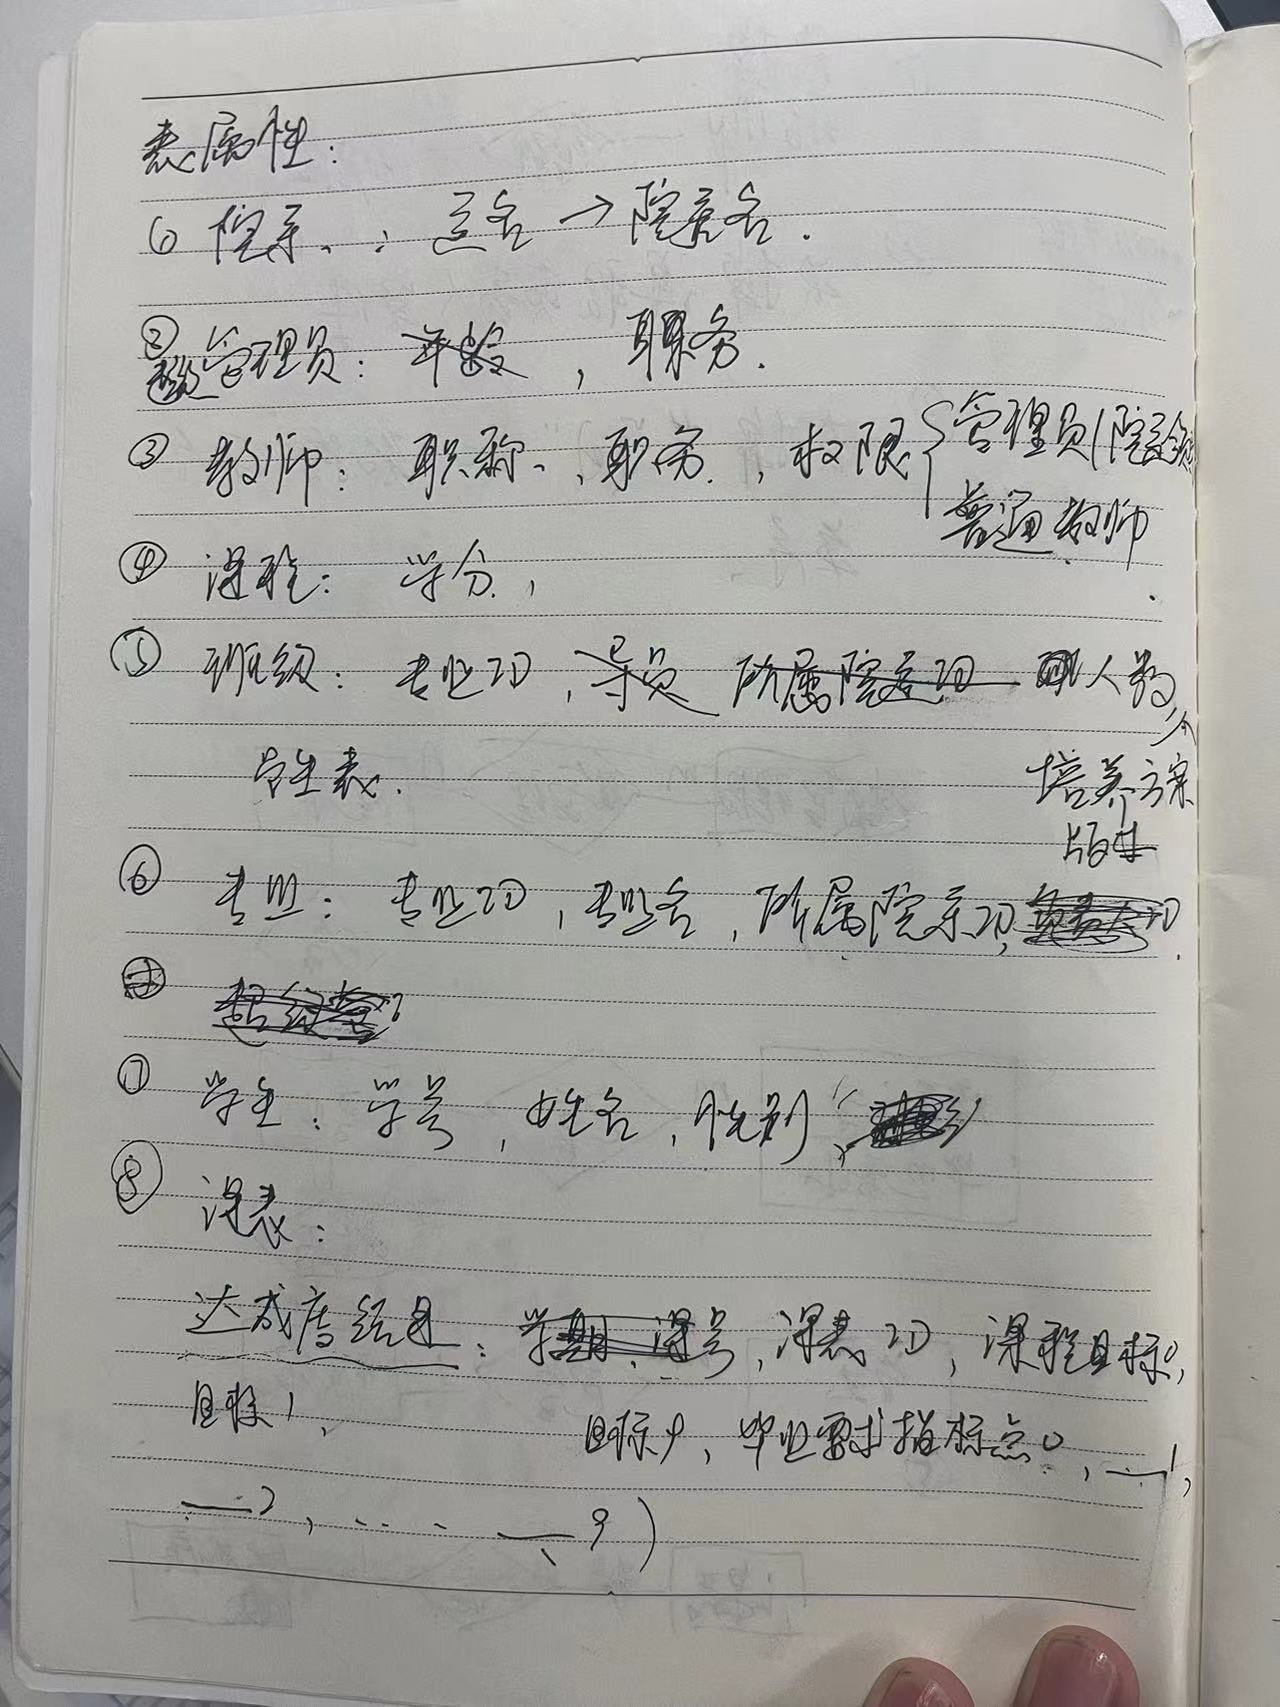 表属性:
① 院系、: 系名 → 院系名.
② 超级管理员: 年龄, 职务.
③ 教师: 职称、, 职务., 权限{管理员(院系级
普通教师
④ 课程: 学分,
⑤ 班级: 专业ID, 导员 所属院系ID 人数,
学生表.
培养方案
版本
⑥ 专业: 专业ID, 专业名, 所属院系ID, 负责人ID.
⑦ 学生: 学号, 姓名, 性别,
⑧ 课表:
达成度结果: 学期、课号, 课表ID, 课程目标0,
目标1, 目标9, 毕业要求指标点0, —1,
—2, ... —9)